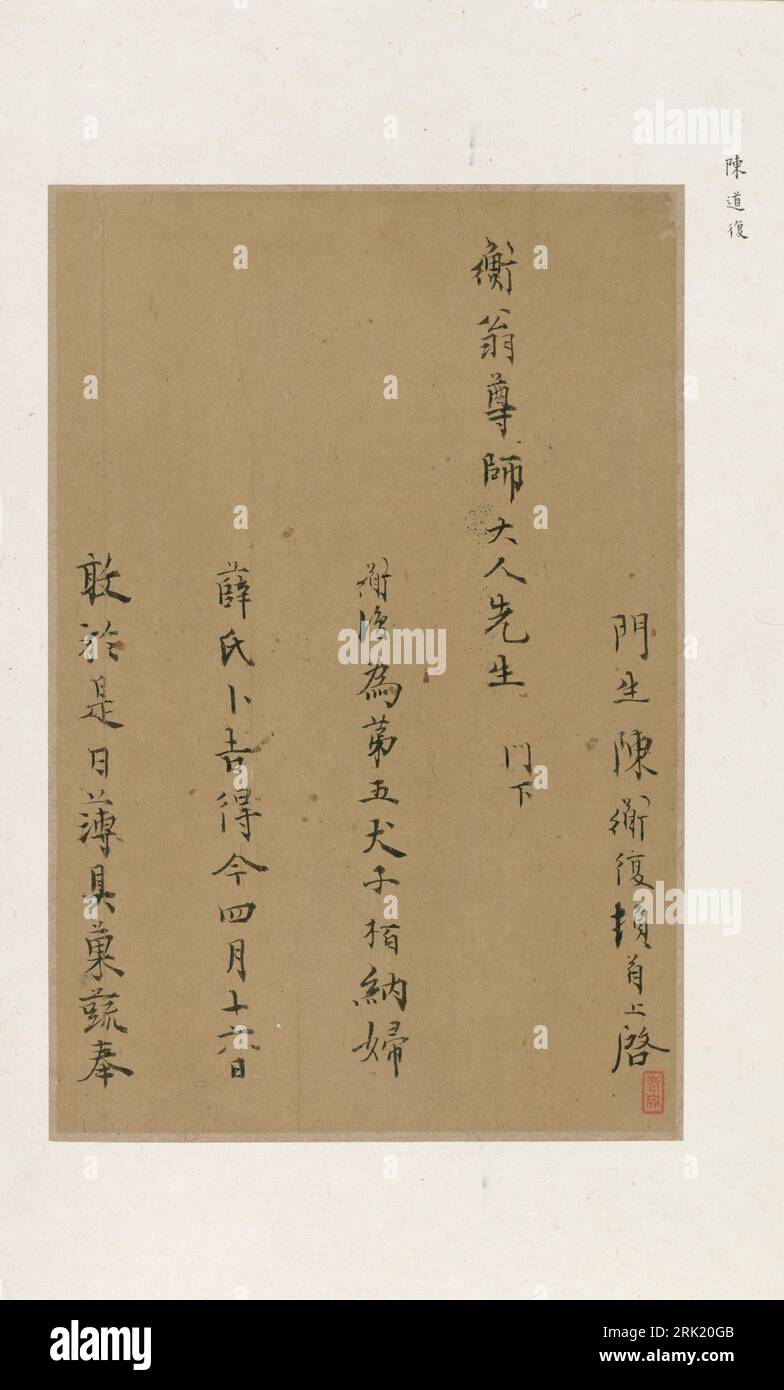 陳道復
門生陳衜復頓首上啓
衡翁尊師大人先生 門下
衜復為第五犬子栢納婦
薛氏卜吉得今四月十六日
敢於是日薄具菓蔬奉
alamy
alamy
Image ID: 2RK20GB
www.alamy.com